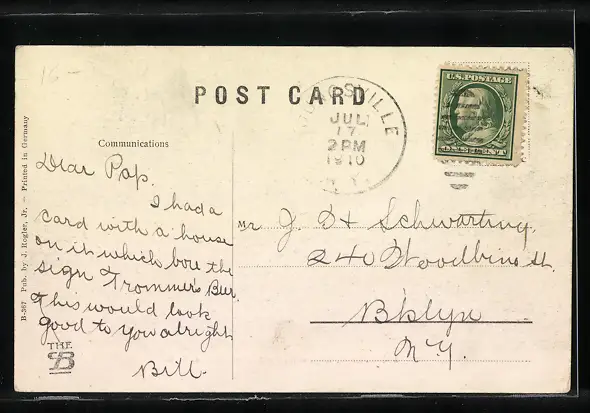 16 -
POST CARD
SVILLE
JUL
17
2 PM
1910
N.Y.
U.S. POSTAGE
ONE CENT
Communications
Dear Pop.
I had a
card with a house
on it which bore the
sign Trommer's Beer.
This would look
good to you alright
Bill.
Mr J. H Schwarting,
240 Woodbine St.
B'klyn
N.Y.
THE
B
B-367 Pub. by J. Ruglar, Jr. – Printed in Germany